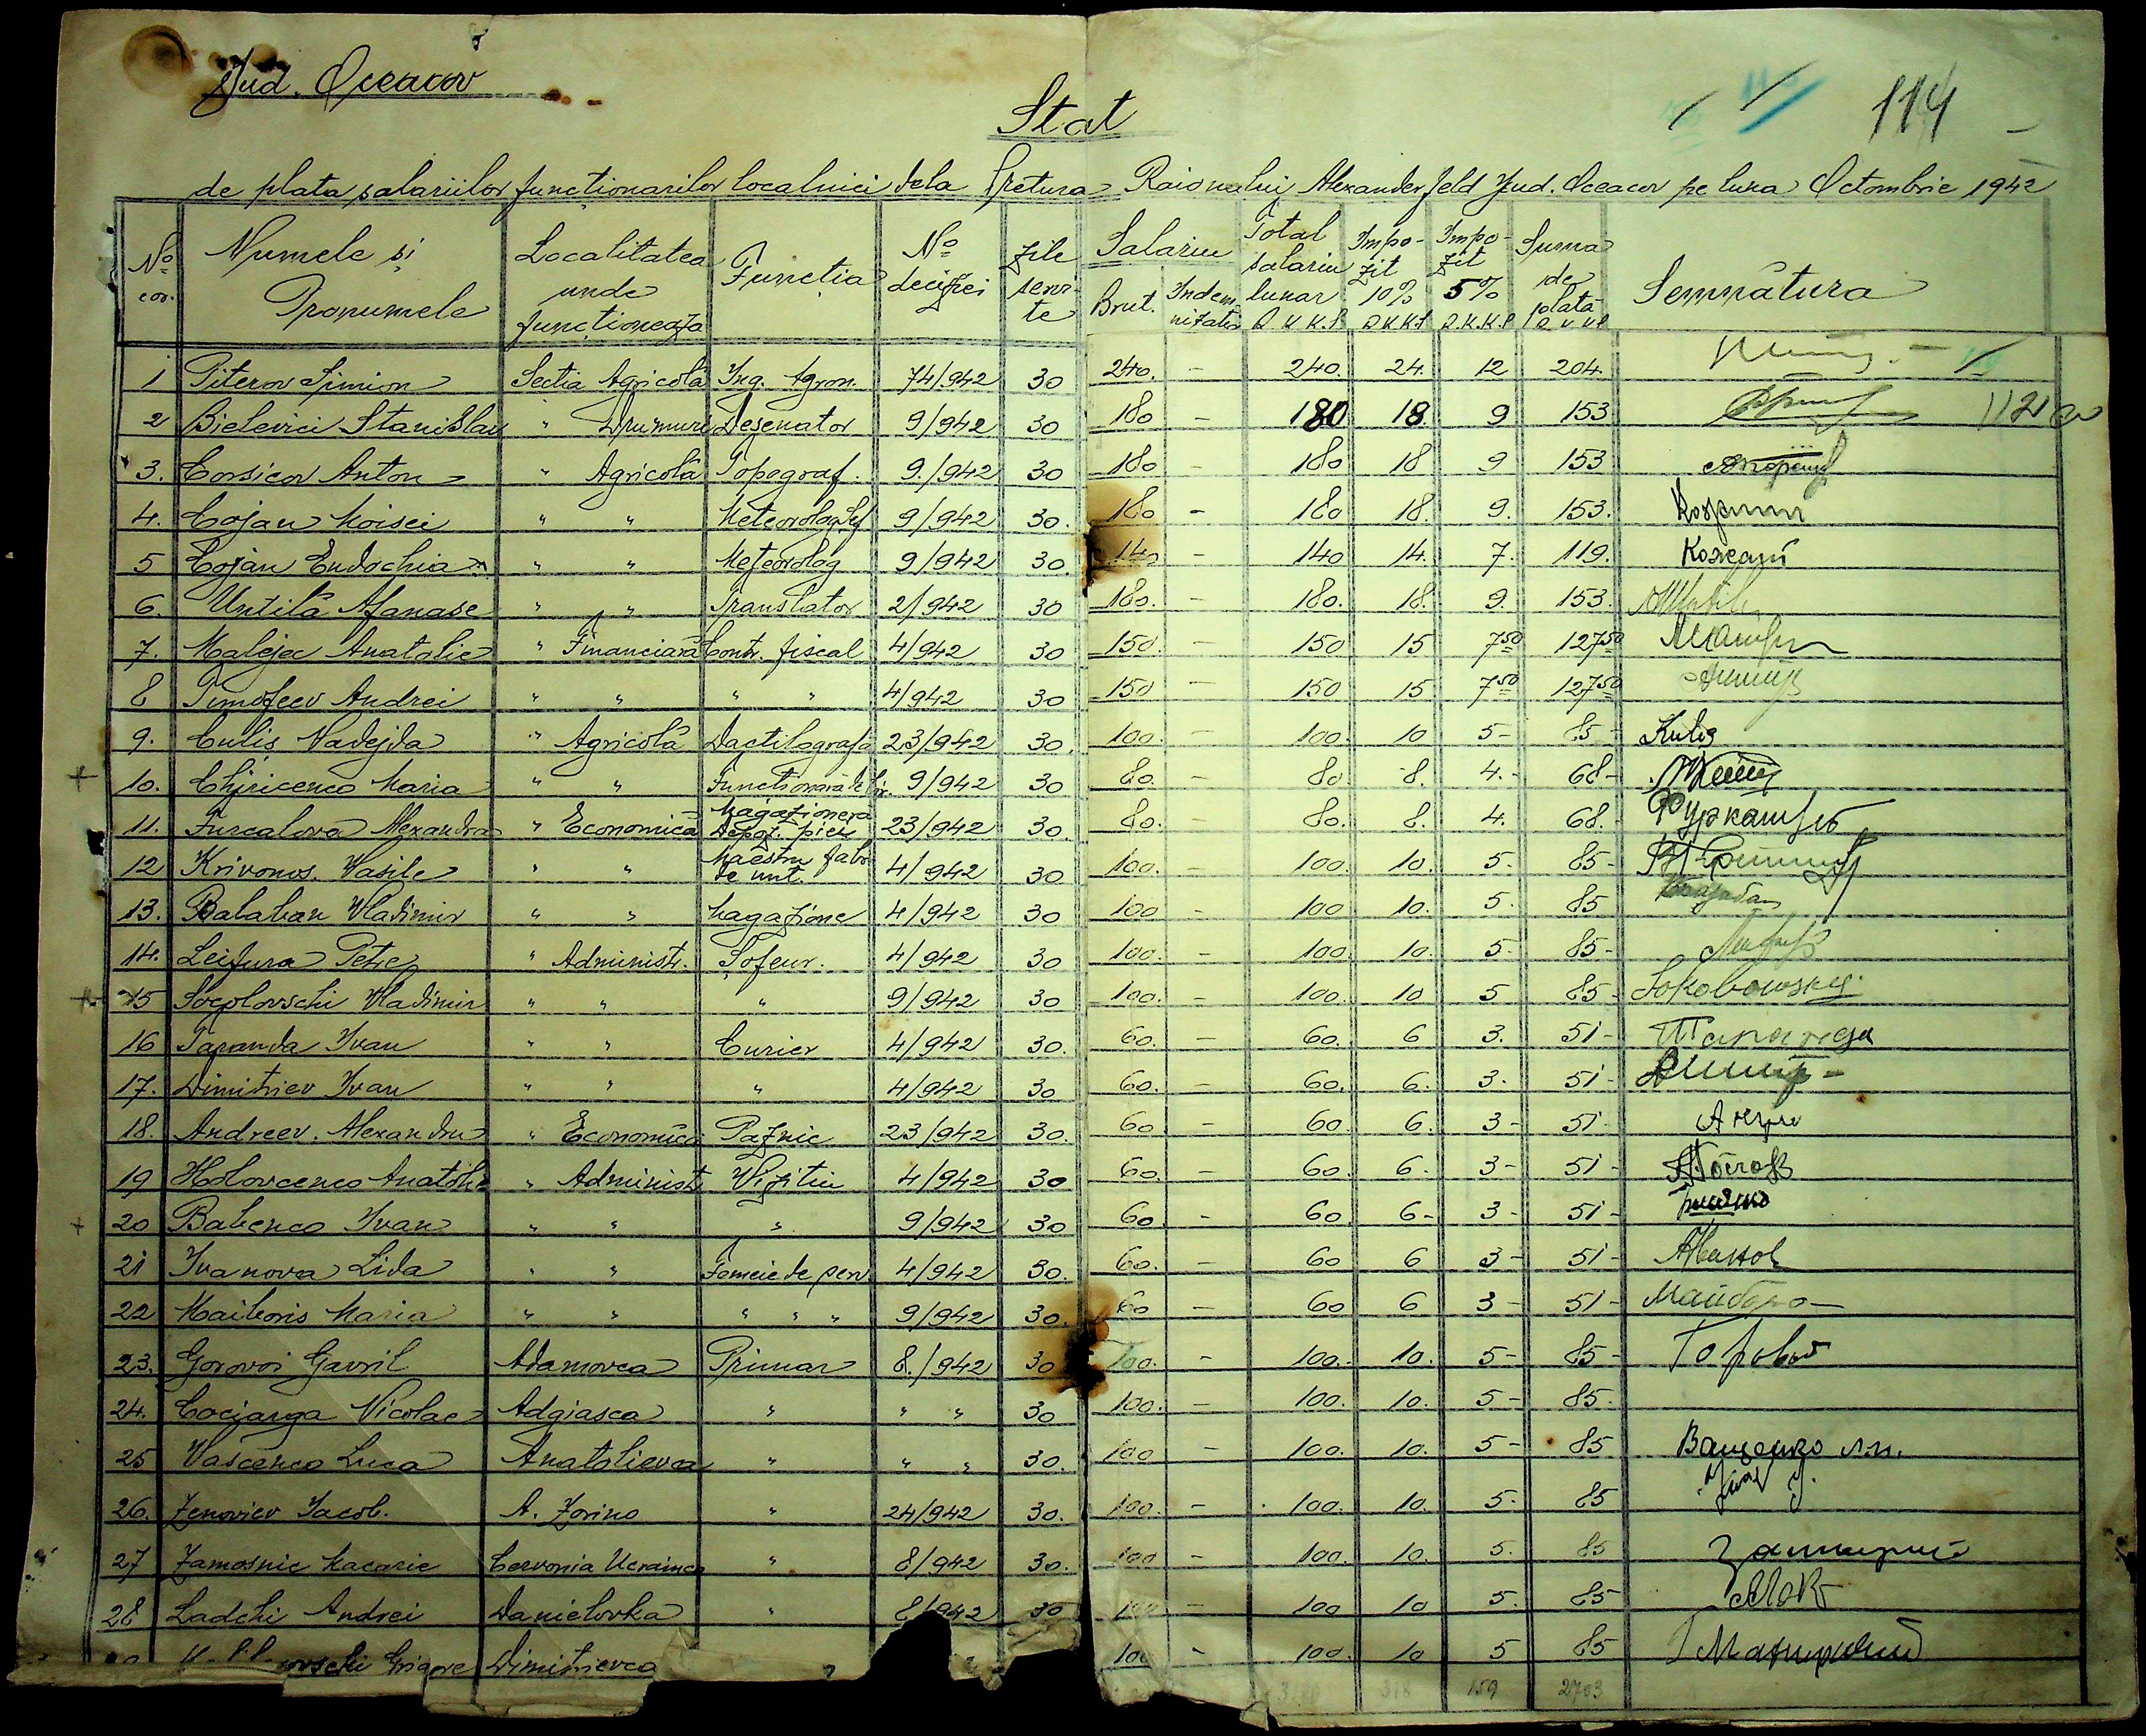 Jud. Oceacov
114
Stat
de plata salariilor funcționarilor localnici dela Pretura Raionului Alexanderfeld Jud. Oceacov pe luna Octombrie 1942
No cor. Numele și Pronumele Localitatea unde funcționează Funcția No deciziei Zile servite Salariu Brut. Indemnizatie Total salariu lunar R.K.K.S Impozit 10% R.K.K.S Impozit 5% R.K.K.S Suma de plată R.K.K.S Semnătura
1 Piterov Simion Sectia Agricolă Ing. Agron. 74/942 30 240. - 240. 24. 12 204.
2 Bielevici Stanislav " Drumuri Desenator 9/942 30 180 - 180 18. 9 153
3. Corsicov Anton " Agricolă Topograf. 9./942 30 180 - 180 18 9 153
4. Cojan Moisei " " Meteorolog Șef 9/942 30. 180 - 180 18. 9. 153.
5 Cojan Eudochia " " Meteorolog 9/942 30 140 - 140 14. 7. 119. Кожан
6. Untilă Afanase " " Translator 2/942 30 180. - 180. 18. 9. 153.
7. Maleja Anatolie " Financiară Contr. fiscal 4/942 30 150. - 150 15 7 50 127 50
8 Timofeev Andrei " " " " 4/942 30 150 - 150 15 7 50 127 50
9. Culiș Nadejda " Agricolă Dactilografă 23/942 30. 100. - 100. 10 5- 85- Kuliș
10. Chiricenco Maria " " Functionară de 9/942 30 80. - 80 8. 4.- 68-
11. Furcalova Alexandra " Economică Magazionera Depoz. piei 23/942 30. 80. - 80. 8. 4. 68.
12 Krivonos. Vasile " " Maestru fabr. de unt. 4/942 30 100. - 100. 10. 5. 85-
13. Balaban Vladimir " " Magazione 4/942 30 100 - 100 10. 5. 85
14. Leifura Petre " Administr. Șofeur. 4/942 30 100. - 100. 10. 5- 85-
15 Socolovschi Vladimir " " " 9/942 30 100. - 100. 10 5 85-
16 Taranda Ivan " " Curier 4/942 30. 60. - 60. 6 3. 51-
17. Dimitriev Ivan " " " 4/942 30 60. - 60. 6. 3. 51-
18. Andreev. Alexandru " Economică Paznic 23/942 30. 60 - 60 6. 3- 51-
19 Holovcenco Anatolie " Administr Vizitiu 4/942 30 60. - 60. 6. 3- 51-
20 Babenco Ivan " " " 9/942 30 60 - 60. 6- 3- 51-
21 Ivanova Lida " " Femeie de serv. 4/942 30. 60. - 60 6 3- 51-
22 Maiboris Maria " " " " " 9/942 30. 60 - 60 6 3- 51-
23. Gorovoi Gavril Adamovca Primar 8./942 30 100. - 100. 10. 5- 85- Горовой
24. Cocianga Nicolae Adgiasca " " " 30 100. - 100. 10. 5- 85.
25 Vascenco Luca Anatolievca " " " 30. 100 - 100. 10. 5- 85 Ващенко
26. Zenoviev Iacob. A. Zorino " 24/942 30. 100. - 100. 10. 5. 85
27 Zamosnic Macarie Cervonia Ucrainca " 8/942 30. 100 - 100. 10. 5. 85
28 Ladchi Andrei Danielovka " 8/942 30 100 - 100 10 5. 85
Grigore Dimitrievca 100 - 100. 10 5 85
318 159 2703